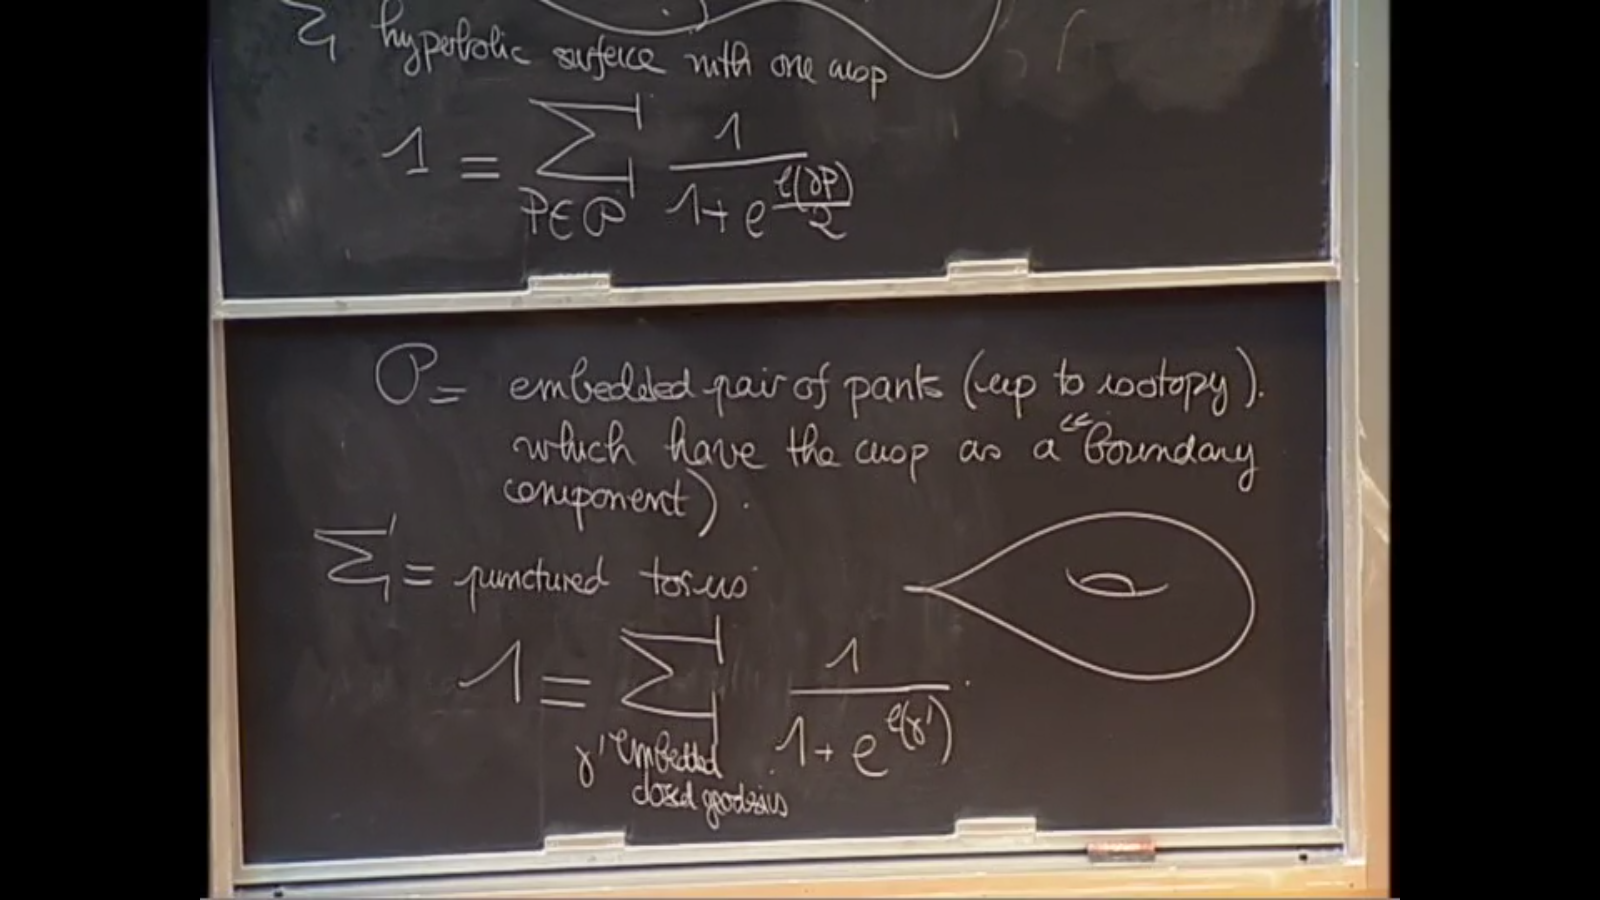 Σ hyperbolic surface with one cusp
1 = Σ_{P∈𝒫} \frac{1}{1 + e^{\frac{ℓ(∂P)}{2}}}
𝒫 = embedded pair of pants (up to isotopy).
which have the cusp as a "boundary
component) .
Σ = punctured torus
1 = Σ_{γ' embedded closed geodesics} \frac{1}{1 + e^{ℓ(γ')}} .